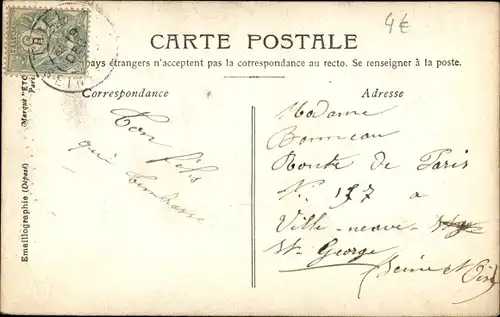 4€
CARTE POSTALE
pays étrangers n'acceptent pas la correspondance au recto. Se renseigner à la poste.
Correspondance
Adresse
Ton fils
qui t'embrasse
Madame
Bonneau
Route de Paris
N. 157 a
Ville-neuve-
St. George
(Seine et Oise)
Emaillographie (Déposé)
Marque "ETO
Paris